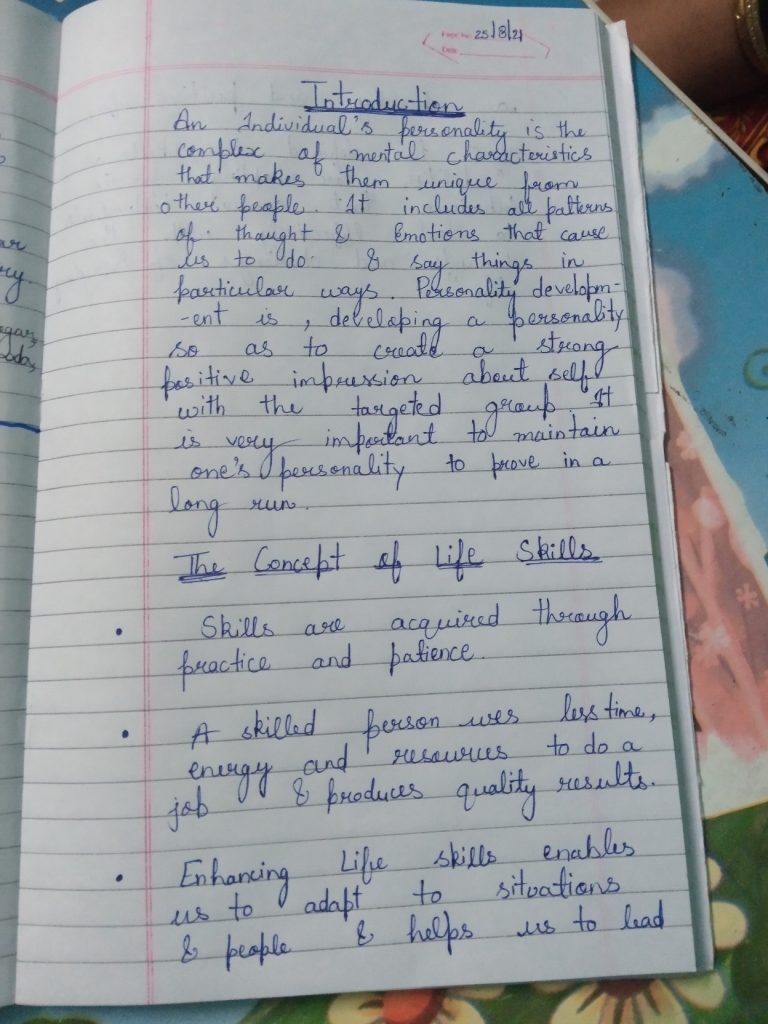 25/8/21
Introduction
An Individual's personality is the
complex of mental characteristics
that makes them unique from
other people. It includes all patterns
of thought & Emotions that cause
us to do & say things in
particular ways. Personality developm-
-ent is, developing a personality
so as to create a strong
positive impression about self
with the targeted group. It
is very important to maintain
one's personality to prove in a
long run.
The Concept of Life Skills
• Skills are acquired through
practice and patience.
• A skilled person uses less time,
energy and resources to do a
job & produces quality results.
• Enhancing Life skills enables
us to adapt to situations
& people & helps us to lead